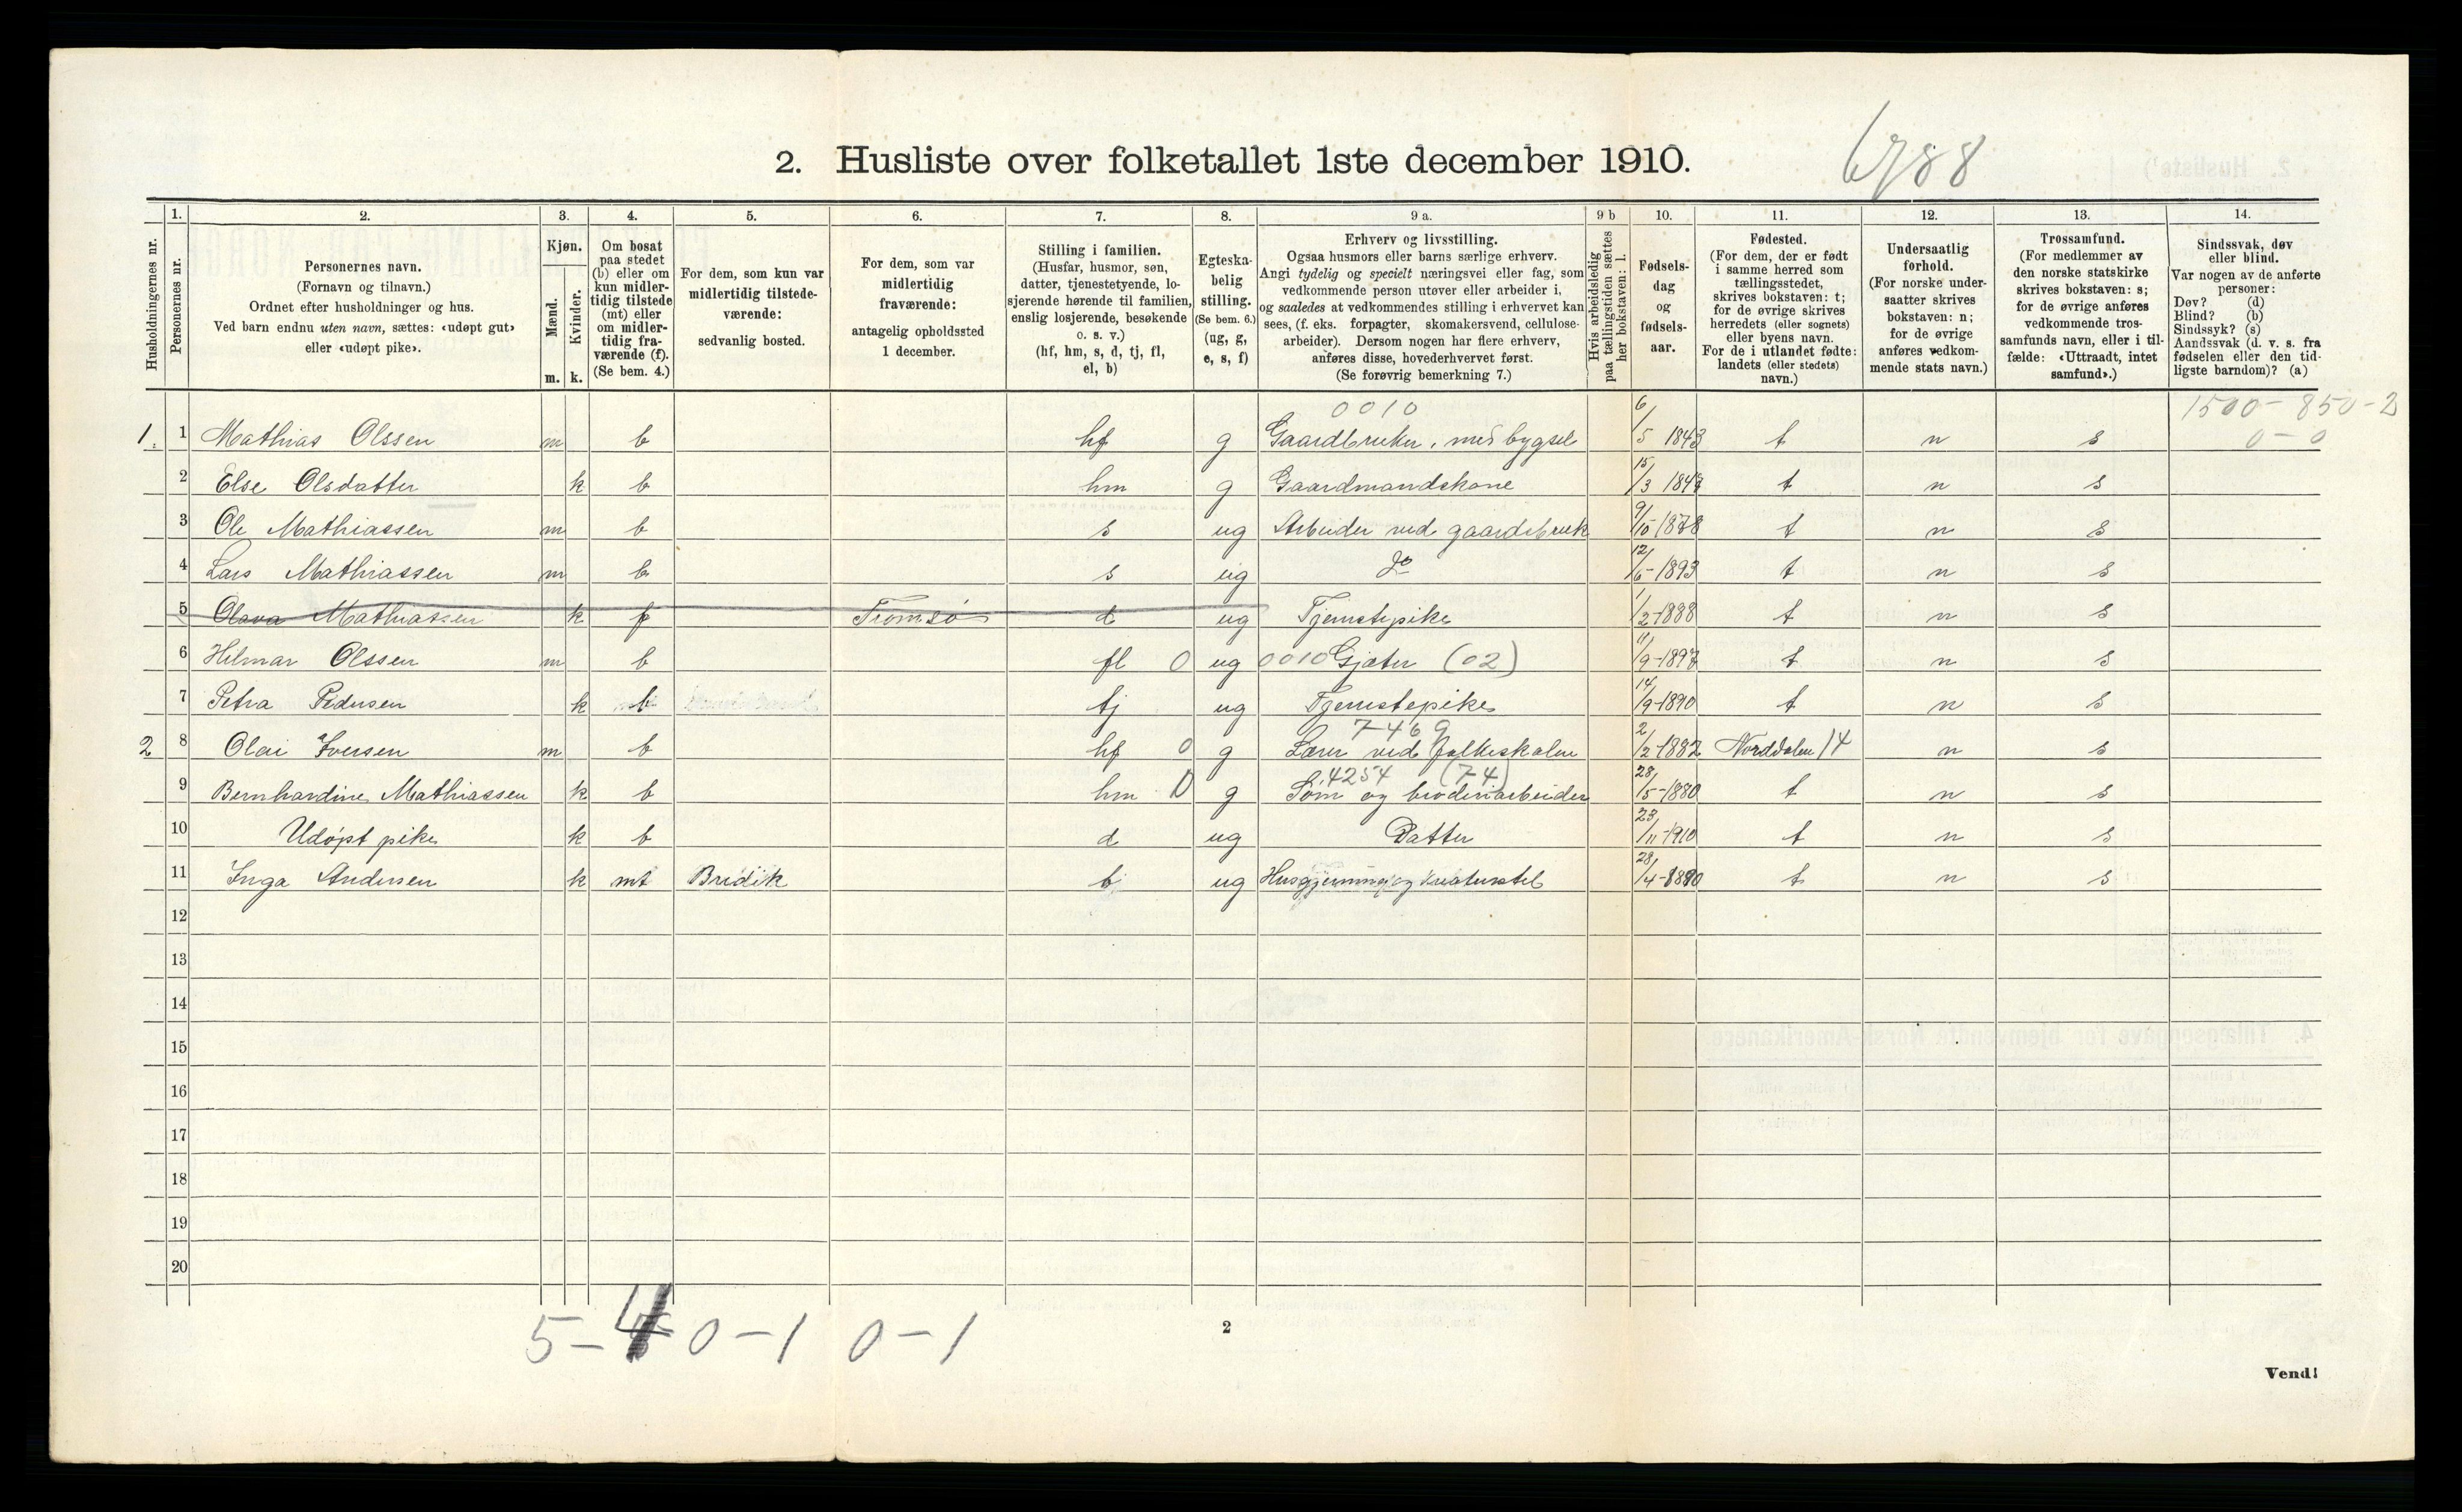 2. Husliste over folketallet 1ste december 1910.
6788
Husholdningernes nr.
1.
Personernes nr.
2.
Personernes navn.
(Fornavn og tilnavn.)
Ordnet efter husholdninger og hus.
Ved barn endnu uten navn, sættes: «udøpt gut»
eller «udøpt pike».
3.
Kjøn.
Mænd.
Kvinder.
m. k.
4.
Om bosat
paa stedet
(b) eller om
kun midler-
tidig tilstede
(mt) eller
om midler-
tidig fra-
værende (f).
(Se bem. 4.)
5.
For dem, som kun var
midlertidig tilstede-
værende:
sedvanlig bosted.
6.
For dem, som var
midlertidig
fraværende:
antagelig opholdssted
1 december.
7.
Stilling i familien.
(Husfar, husmor, søn,
datter, tjenestetyende, lo-
sjerende hørende til familien,
enslig losjerende, besøkende
o. s. v.)
(hf, hm, s, d, tj, fl,
el, b)
8.
Egteska-
belig
stilling.
(Se bem. 6.)
(ug, g,
e, s, f)
9 a.
Erhverv og livsstilling.
Ogsaa husmors eller barns særlige erhverv.
Angi tydelig og specielt næringsvei eller fag, som
vedkommende person utøver eller arbeider i,
og saaledes at vedkommendes stilling i erhvervet kan
sees, (f. eks. forpagter, skomakersvend, cellulose-
arbeider). Dersom nogen har flere erhverv,
anføres disse, hovederhvervet først.
(Se forøvrig bemerkning 7.)
9 b
Hvis arbeidsledig
paa tællingstiden sættes
her bokstaven: l.
10.
Fødsels-
dag
og
fødsels-
aar.
11.
Fødested.
(For dem, der er født
i samme herred som
tællingsstedet,
skrives bokstaven: t;
for de øvrige skrives
herredets (eller sognets)
eller byens navn.
For de i utlandet fødte:
landets (eller stedets)
navn.)
12.
Undersaatlig
forhold.
(For norske under-
saatter skrives
bokstaven: n;
for de øvrige
anføres vedkom-
mende stats navn.)
13.
Trossamfund.
(For medlemmer av
den norske statskirke
skrives bokstaven: s;
for de øvrige anføres
vedkommende tros-
samfunds navn, eller i til-
fælde: «Uttraadt, intet
samfund».)
14.
Sindssvak, døv
eller blind.
Var nogen av de anførte
personer:
Døv? (d)
Blind? (b)
Sindssyk? (s)
Aandssvak (d. v. s. fra
fødselen eller den tid-
ligste barndom)? (a)
0010 1500-850-2
1. 1 Mathias Olssen m b hf g Gaardbruker, med bygsel 6/5 1843 t n s 0-0
2 Else Olsdatter k b hm g Gaardmandskone 15/3 t n s
3 Ole Mathiassen m b s ug Arbeider ved gaardsbruk 9/10 1878 t n s
4 Lars Mathiassen m b s ug Do 12/6-1893 t n s
5 Olava Mathiassen k f Tromsø d ug Tjenestepike 1/2-1888 t n s
6 Hilmar Olssen m b fl 0 ug 0010 Gjæter (02) 11/9-1897 t n s
7 Petra Pedersen k b tj ug Tjenestepike 14/9-1890 t n s
7469
2 8 Olai Iversen m b hf 0 g Lærer ved folkeskolen 2/2-1882 Norddalen 14 n s
4254 (74)
9 Bernhardine Mathiassen k b hm D g Søm og broderiarbeider 28/5-1880 t n s
10 Udøpt pike k b d ug Datter 23/11-1910 t n s
11 Inga Andersen k mt Bredik b ug Husgjerning og kreaturstel 28/4-1890 t n s
12
13
14
15
16
17
18
19
20
5-4 0-1 0-1
2
Vend!